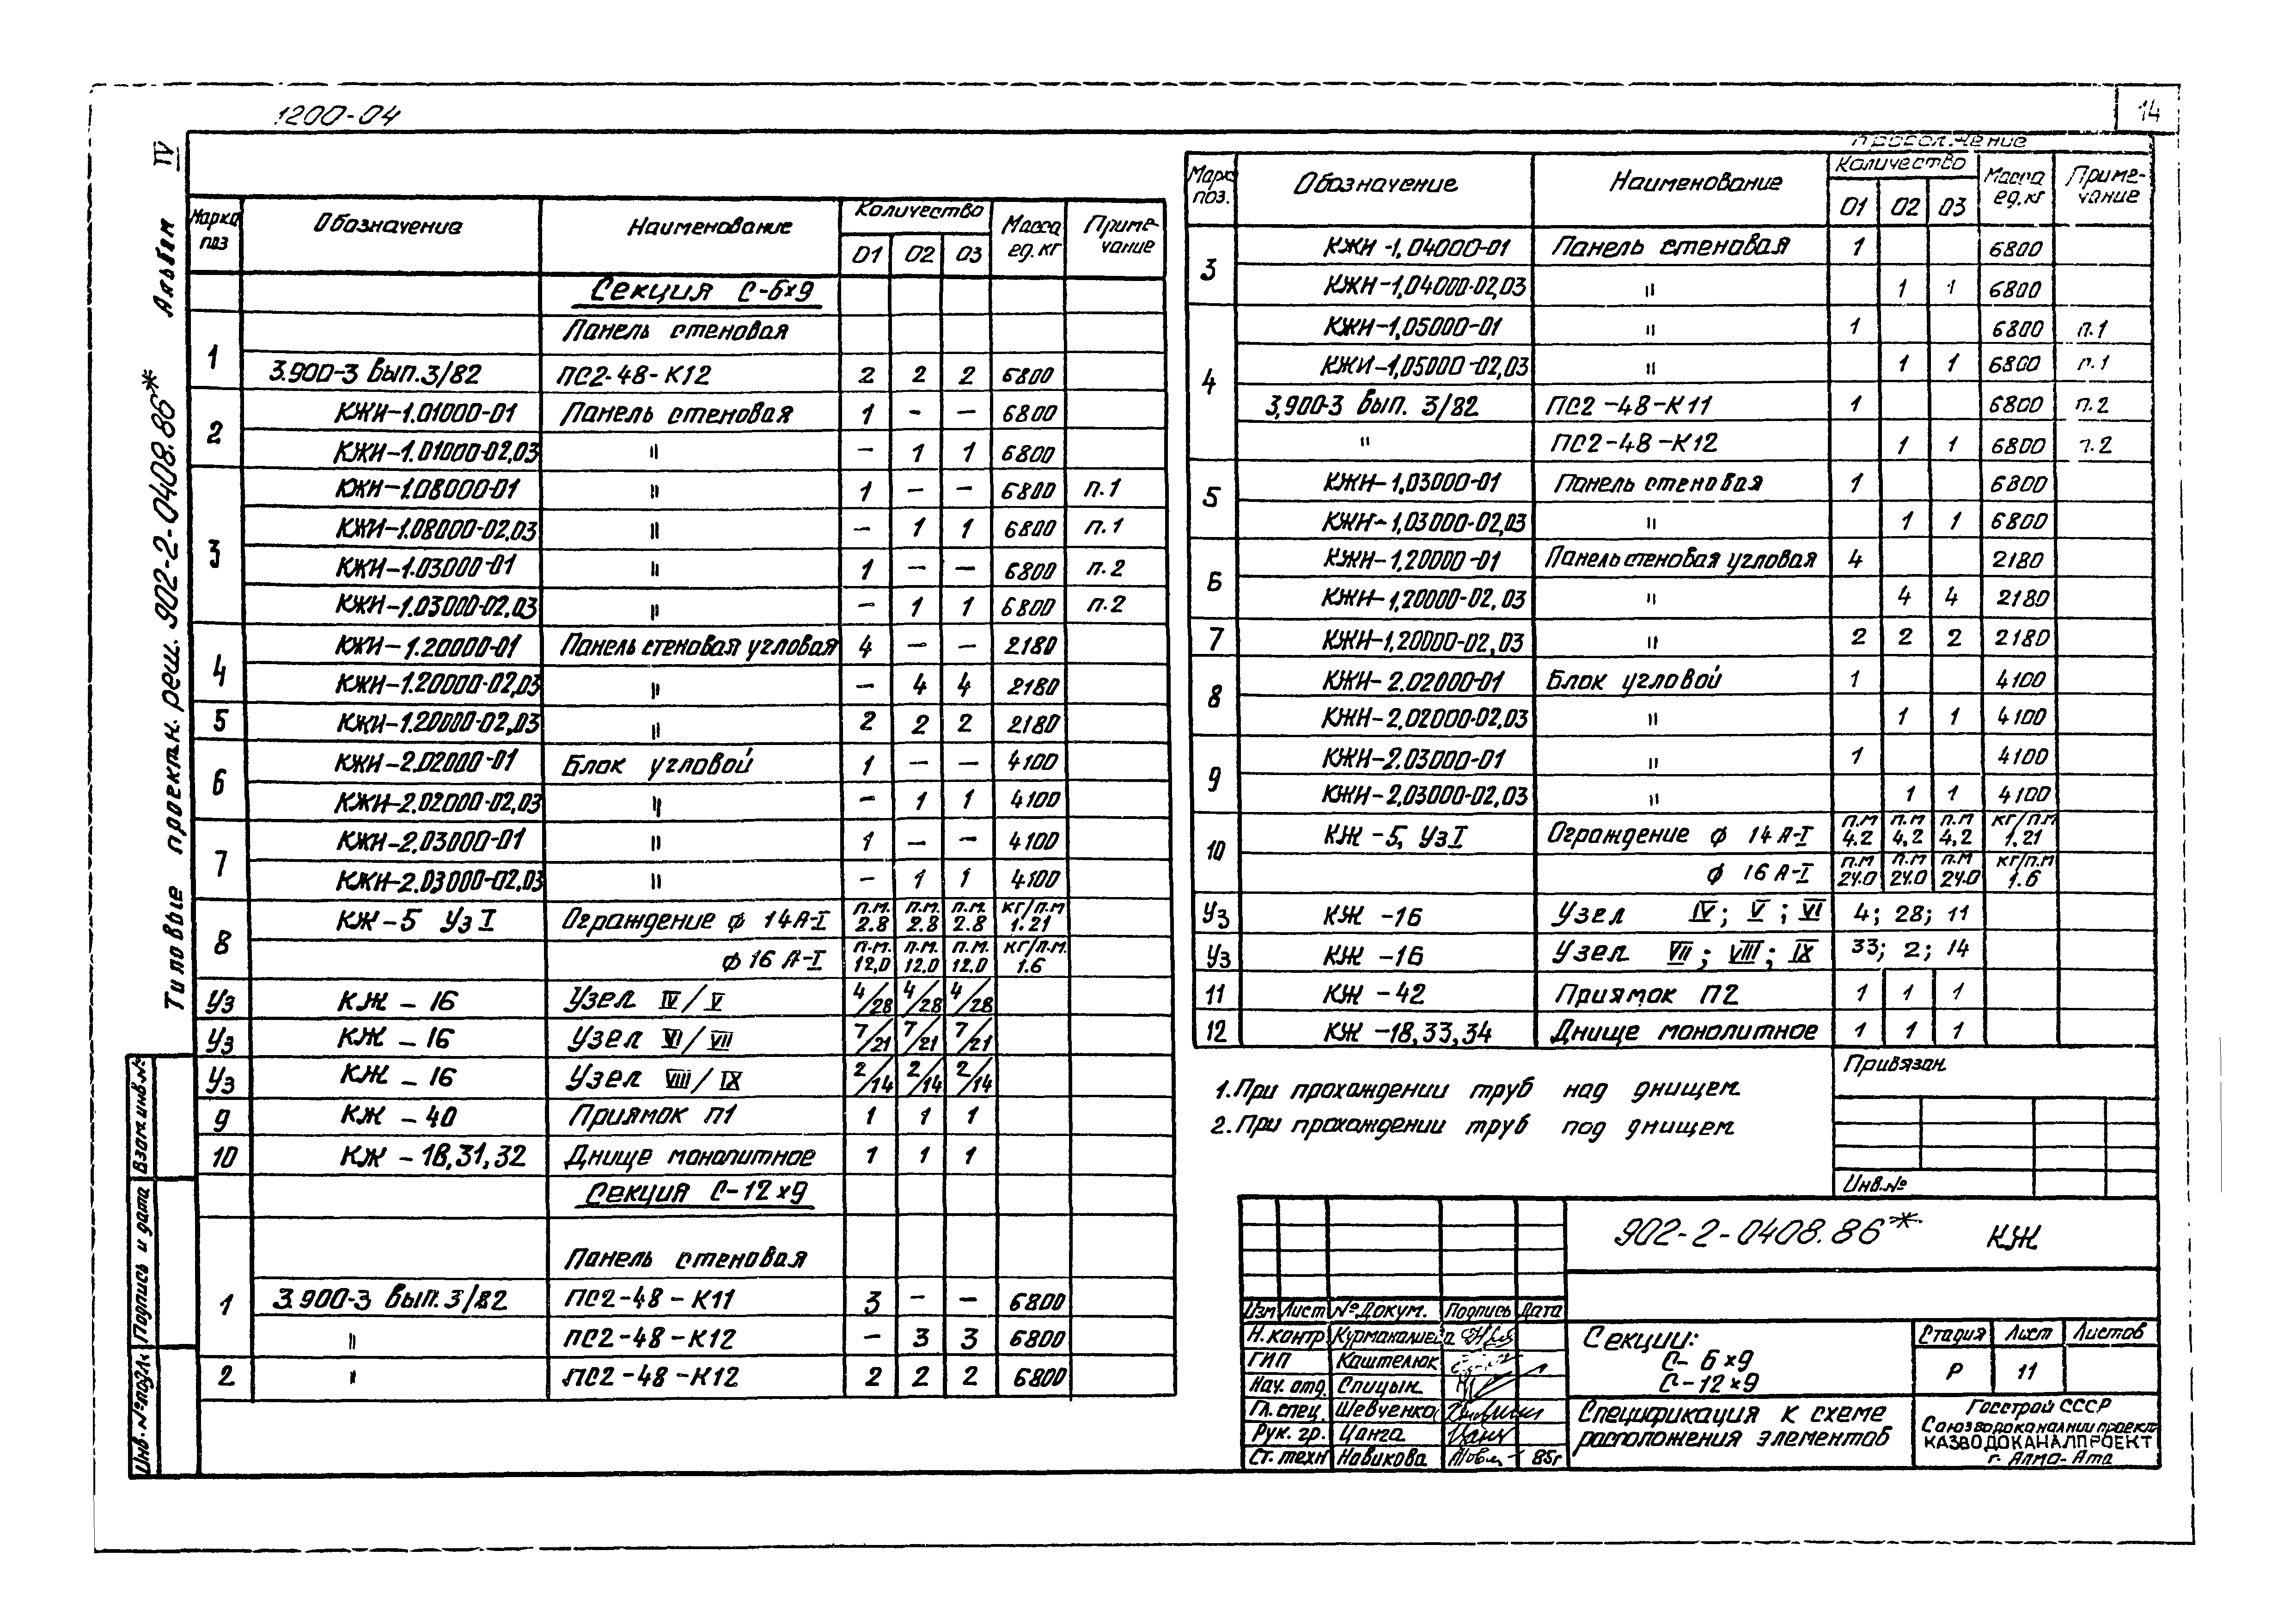 1200-04
14
Типовые проектн. реш. 902-2-0408.86* Альбом IV
Марка поз | Обозначение | Наименование | Количество 01 02 03 | Масса ед. кг | Примечание
Секция С-6×9
Панель стеновая
1 | 3.900-3 вып. 3/82 | ПС2-48-К12 | 2 | 2 | 2 | 6800
2 | КЖИ-1.01000-01 | Панель стеновая | 1 | - | - | 6800
КЖИ-1.01000-02,03 | " | - | 1 | 1 | 6800
3 | КЖИ-1.08000-01 | " | 1 | - | - | 6800 | п.1
КЖИ-1.08000-02,03 | " | - | 1 | 1 | 6800 | п.1
КЖИ-1.03000-01 | " | 1 | - | - | 6800 | п.2
КЖИ-1.03000-02,03 | " | - | 1 | 1 | 6800 | п.2
4 | КЖИ-1.20000-01 | Панель стеновая угловая | 4 | - | - | 2180
КЖИ-1.20000-02,03 | " | - | 4 | 4 | 2180
5 | КЖИ-1.20000-02,03 | " | 2 | 2 | 2 | 2180
6 | КЖИ-2.02000-01 | Блок угловой | 1 | - | - | 4100
КЖИ-2.02000-02,03 | " | - | 1 | 1 | 4100
7 | КЖИ-2.03000-01 | " | 1 | - | - | 4100
КЖИ-2.03000-02,03 | " | - | 1 | 1 | 4100
8 | КЖ-5 Уз I | Ограждение ф 14А-I | п.м. 2.8 | п.м. 2.8 | п.м. 2.8 | кг/п.м 1.21
ф 16 А-I | п.м. 12,0 | п.м. 12.0 | п.м. 12.0 | кг/п.м. 1.6
Уз | КЖ - 16 | Узел IV/V | 4/28 | 4/28 | 4/28
Уз | КЖ - 16 | Узел VI/VII | 7/21 | 7/21 | 7/21
Уз | КЖ - 16 | Узел VIII/IX | 2/14 | 2/14 | 2/14
9 | КЖ - 40 | Приямок п1 | 1 | 1 | 1
10 | КЖ - 18,31,32 | Днище монолитное | 1 | 1 | 1
Секция С-12×9
Панель стеновая
1 | 3.900-3 вып. 3/82 | ПС2-48-К11 | 3 | - | - | 6800
" | ПС2-48-К12 | - | 3 | 3 | 6800
2 | " | ПС2-48-К12 | 2 | 2 | 2 | 6800
Продолжение
Марка поз. | Обозначение | Наименование | Количество 01 02 03 | Масса ед. кг | Примечание
3 | КЖИ-1,04000-01 | Панель стеновая | 1 | 6800
КЖИ-1,04000-02,03 | " | 1 | 1 | 6800
4 | КЖИ-1,05000-01 | " | 1 | 6800 | п.1
КЖИ-1,05000-02,03 | " | 1 | 1 | 6800 | п.1
3,900-3 вып. 3/82 | ПС2-48-К11 | 1 | 6800 | п.2
" | ПС2-48-К12 | 1 | 1 | 6800 | п.2
5 | КЖИ-1,03000-01 | Панель стеновая | 1 | 6800
КЖИ-1,03000-02,03 | " | 1 | 1 | 6800
6 | КЖИ-1,20000-01 | Панель стеновая угловая | 4 | 2180
КЖИ-1,20000-02,03 | " | 4 | 4 | 2180
7 | КЖИ-1,20000-02,03 | " | 2 | 2 | 2 | 2180
8 | КЖИ-2.02000-01 | Блок угловой | 1 | 4100
КЖИ-2,02000-02,03 | " | 1 | 1 | 4100
9 | КЖИ-2.03000-01 | " | 1 | 4100
КЖИ-2,03000-02,03 | " | 1 | 1 | 4100
10 | КЖ-5, Уз I | Ограждение ф 14 А-I | п.м 4.2 | п.м 4,2 | п.м 4,2 | кг/п.м 1.21
ф 16 А-I | п.м 24.0 | п.м 24.0 | п.м 24.0 | кг/п.м 1.6
Уз | КЖ -16 | Узел IV; V; VI | 4; 28; 11
Уз | КЖ -16 | Узел VII; VIII; IX | 33; 2; 14
11 | КЖ -42 | Приямок П2 | 1 | 1 | 1
12 | КЖ -18,33,34 | Днище монолитное | 1 | 1 | 1
1. При прохождении труб над днищем
2. При прохождении труб под днищем
Привязан
Инв.№
902-2-0408.86* КЖ
Изм Лист № Докум. Подпись Дата
Н.контр. Курманалиева
ГИП Каштелюк
Нач. отд. Спицын
Гл. спец. Шевченко
Рук. гр. Цанга
Ст. техн Новикова 85г
Секции:
С- 6×9
С-12×9
Спецификация к схеме
расположения элементов
Стадия Лист Листов
Р 11
Госстрой СССР
Союзводоканалниипроект
КАЗВОДОКАНАЛПРОЕКТ
г. Алма-Ата
Взам. инв.№
Подпись и дата
Инв. № подл.